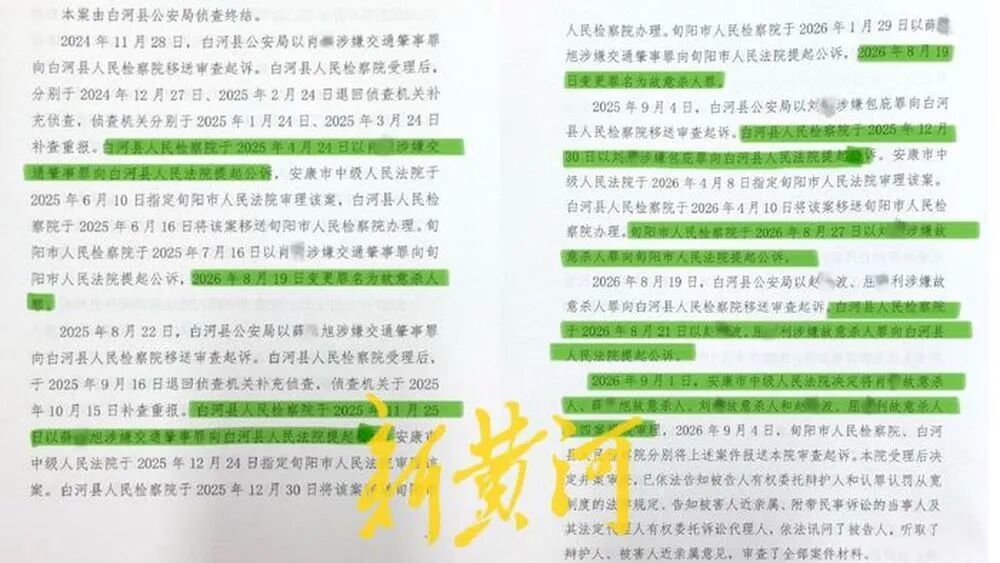 本案由白河县公安局侦查终结。
2024年11月28日，白河县公安局以肖 涉嫌交通肇事罪
向白河县人民检察院移送审查起诉。白河县人民检察院受理后，
分别于2024年12月27日、2025年2月24日退回侦查机关补
充侦查，侦查机关分别于2025年1月24日、2025年3月24日
补查重报。白河县人民检察院于2025年4月24日以肖 涉嫌交
通肇事罪向白河县人民法院提起公诉，安康市中级人民法院于
2025年6月10日指定旬阳市人民法院审理该案，白河县人民检
察院于2025年6月16日将该案移送旬阳市人民检察院办理。旬
阳市人民检察院于2025年7月16日以肖 涉嫌交通肇事罪向旬
阳市人民法院提起公诉，2026年8月19日变更罪名为故意杀人
罪。
2025年8月22日，白河县公安局以薛 旭涉嫌交通肇事罪
向白河县人民检察院移送审查起诉。白河县人民检察院受理后，
于2025年9月16日退回侦查机关补充侦查，侦查机关于2025
年10月15日补查重报。白河县人民检察院于2025年11月25
日以薛 旭涉嫌交通肇事罪向白河县人民法院提起 安康市
中级人民法院于2025年12月24日指定旬阳市人民法院审理该
案。白河县人民检察院于2025年12月30日将该案 旬阳市
人民检察院办理。旬阳市人民检察院于2026年1月29日以薛
旭涉嫌交通肇事罪向旬阳市人民法院提起公诉，2026年8月19
日变更罪名为故意杀人罪。
2025年9月4日，白河县公安局以刘 涉嫌包庇罪向白河
县人民检察院移送审查起诉。白河县人民检察院于2025年12月
30日以刘 涉嫌包庇罪向白河县人民法院提起 诉。安康市中
级人民法院于2026年4月8日指定旬阳市人民法院审理该案。
白河县人民检察院于2026年4月10日将该案移送旬阳市人民检
察院办理。旬阳市人民检察院于2026年8月27日以刘 涉嫌故
意杀人罪向旬阳市人民法院提起公诉。
2026年8月19日，白河县公安局以赵 波、屈 利涉嫌故
意杀人罪向白河县人民检察院移送审查起诉。白河县人民检察院
于2026年8月21日以赵 波、屈 利涉嫌故意杀人罪向白河县
人民法院提起公诉。
2026年9月1日，安康市中级人民法院决定将肖 故意杀
人、薛 旭故意杀人、刘 故意杀人和赵 波、屈 利故意杀人
四案 审理，2026年9月4日，旬阳市人民检察院、白河
县人民检察院分别将上述案件报送本院审查起诉。本院受理后决
定并案审 ，已依法告知被告人有权委托辩护人和认罪认罚从宽
制度的法律规定、告知被害人近亲属、附带民事诉讼的当事人及
其法定代理人有权委托诉讼代理人，依法讯问了被告人，听取了
辩护人、被害人近亲属意见，审查了全部案件材料。
新黄河